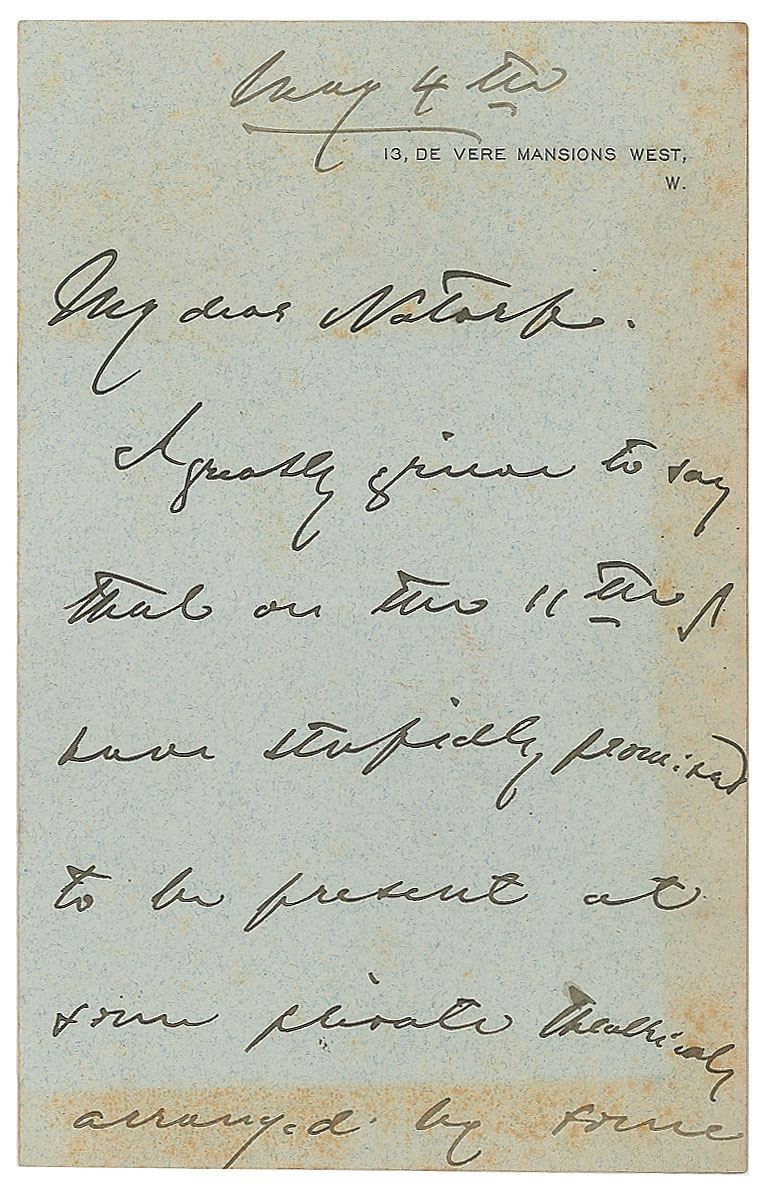 May 4th
13, DE VERE MANSIONS WEST,
W.
My dear Natorp.
I greatly grieve to say
that on the 11th I
have stupidly promised
to be present at
some private theatricals
arranged by some